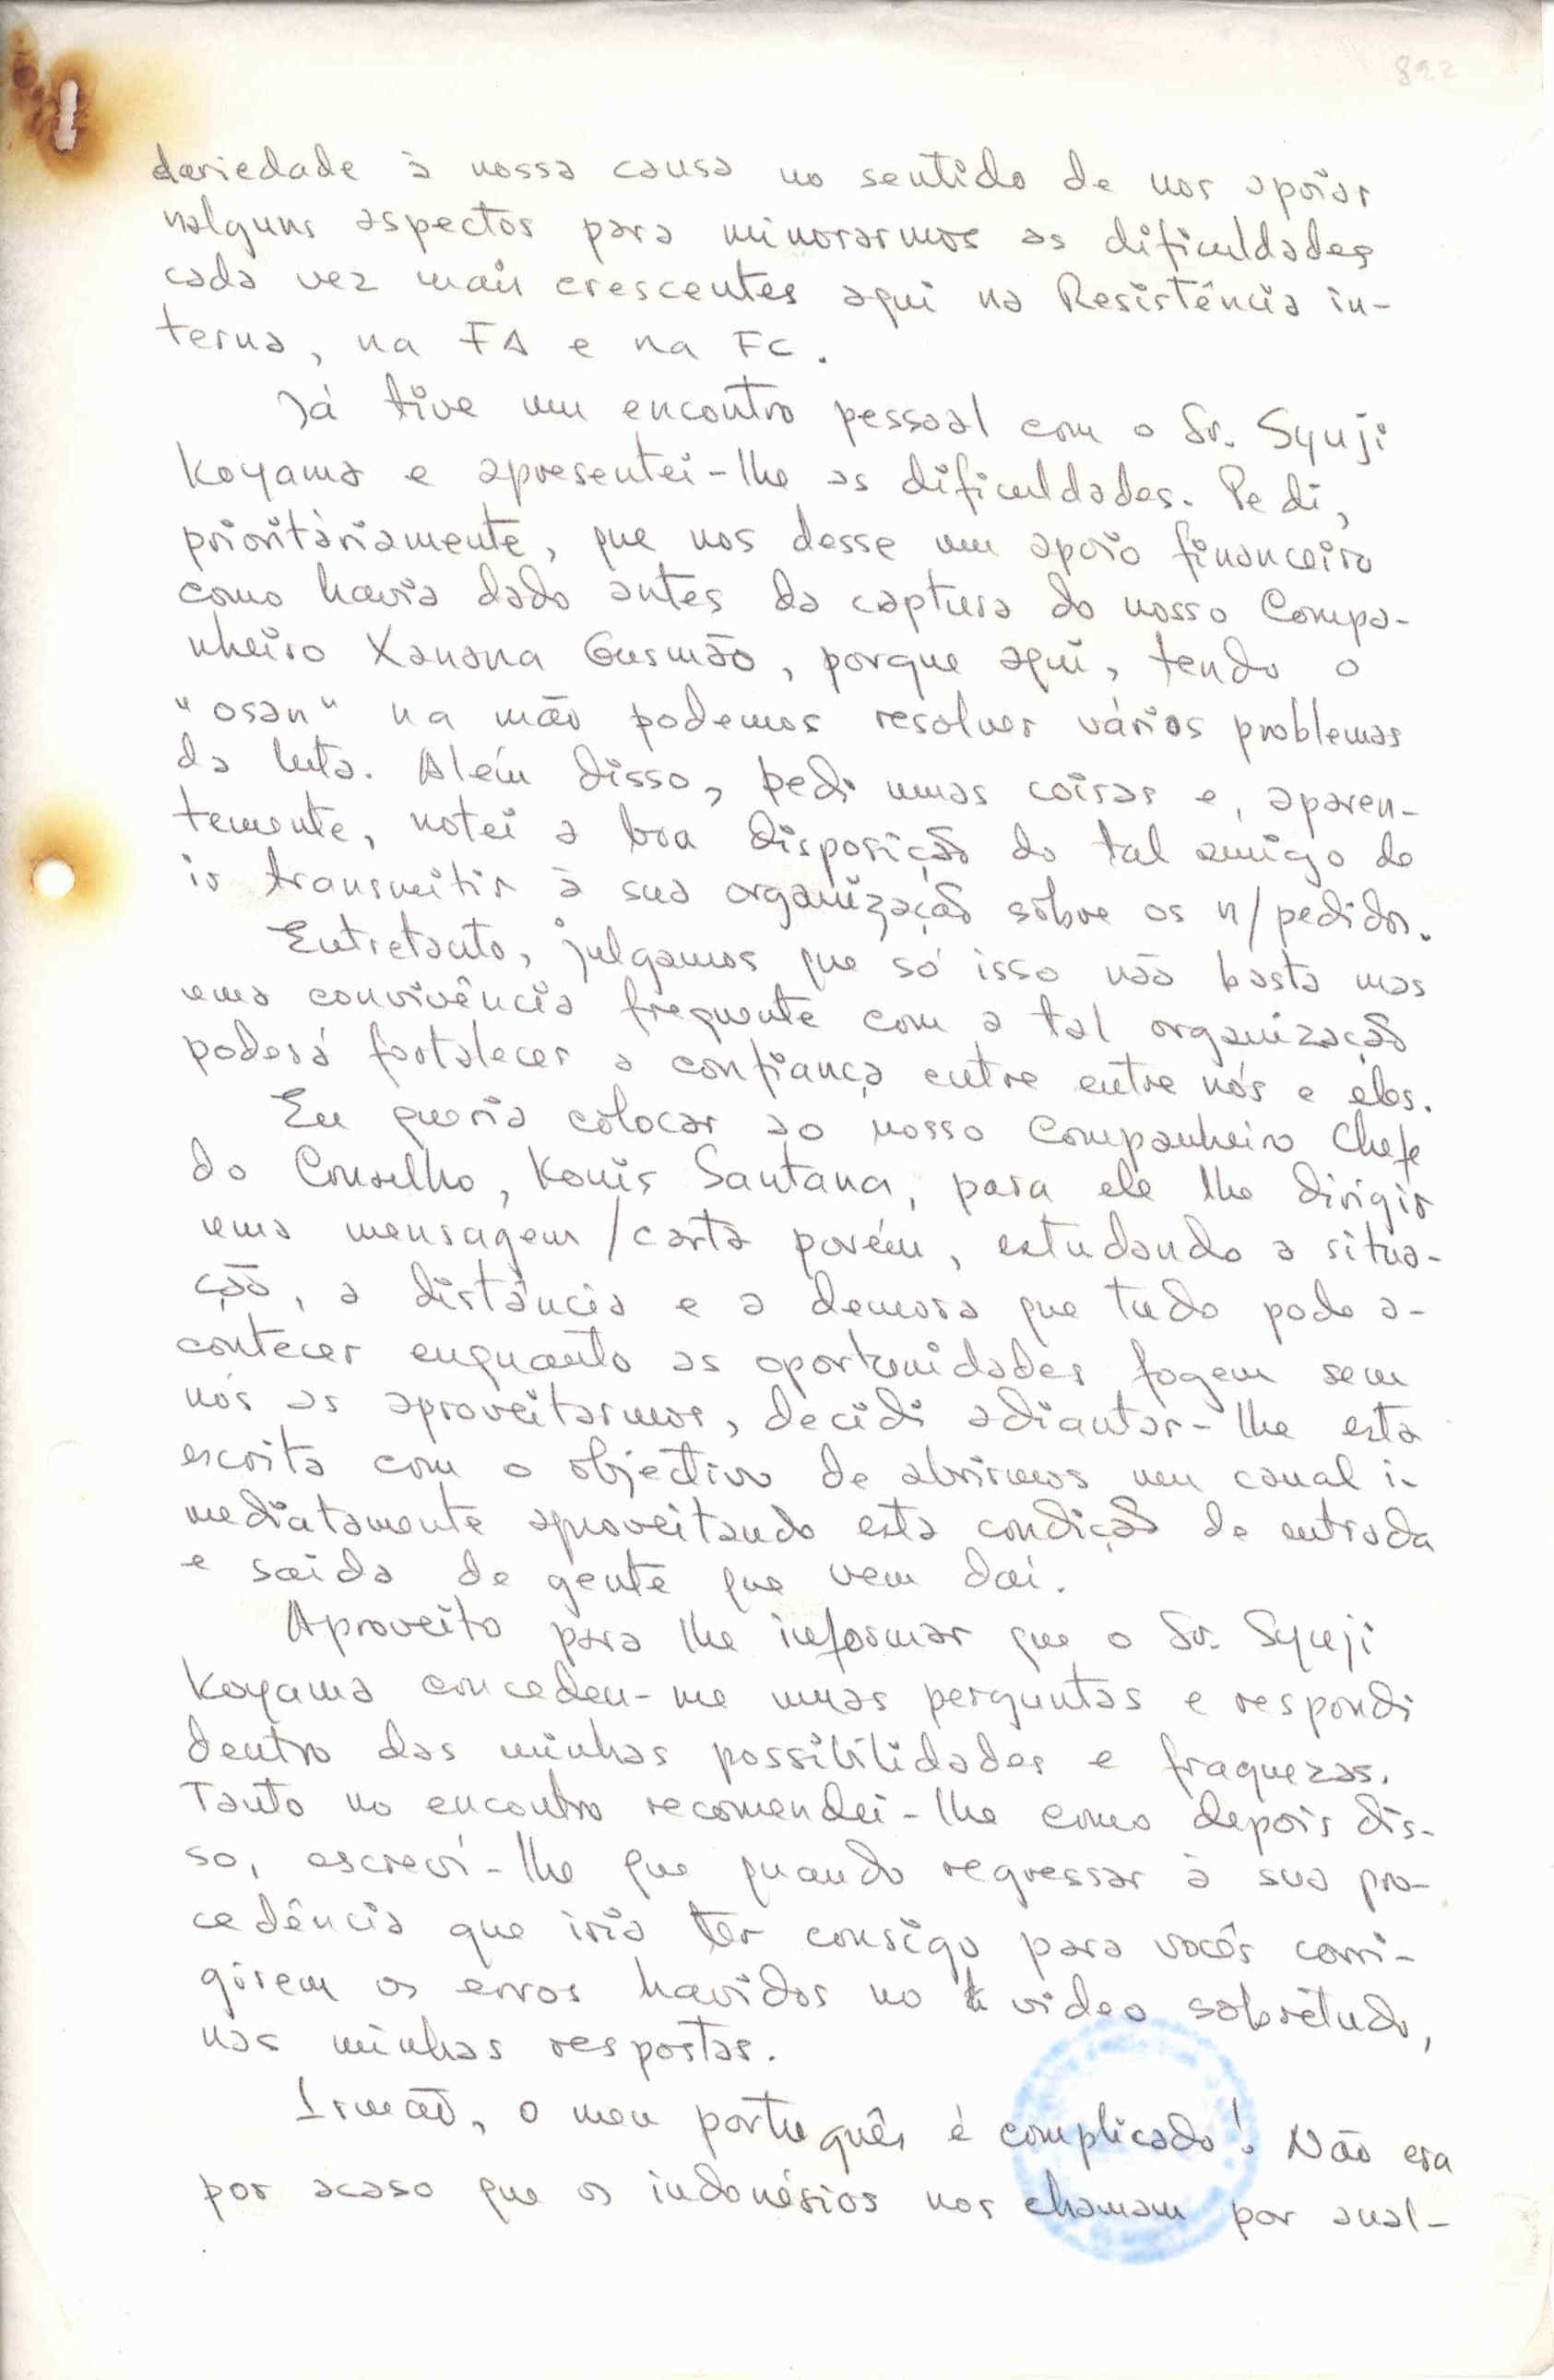 822
dariedade à nossa causa no sentido de nos apoiar
nalguns aspectos para minorarmos as dificuldades
cada vez mais crescentes aqui na Resistência in-
terna, na FA e na FC.
Já tive um encontro pessoal com o Sr. Syuji
Koyama e apresentei-lhe as dificuldades. Pedi,
prioritàriamente, que nos desse um apoio financeiro
como havia dado antes da captura do nosso Compa-
nheiro Xanana Gusmão, porque aqui, tendo o
"osan" na mão podemos resolver vários problemas
da luta. Além disso, pedi umas coisas e, aparen-
temente, notei a boa disposição do tal amigo de
ir transmitir à sua organização sôbre os n/pedidos.
Entretanto, julgamos que só isso não basta mas
uma convivência frequente com a tal organização
poderá fortalecer a confiança entre entre nós e eles.
Eu queria colocar ao nosso Companheiro Chefe
do Conselho, Konis Santana, para ele lhe dirigir
uma mensagem/carta porém, estudando a situa-
ção, a distância e a demora que tudo pode a-
contecer enquanto as oportunidades fogem sem
nós as aproveitarmos, decidi adiantar-lhe esta
escrita com o objectivo de abrirmos um canal i-
mediatamente aproveitando esta condição de entrada
e saida de gente que vem daí.
Aproveito para lhe informar que o Sr. Syuji
Koyama concedeu-me umas perguntas e respondi
dentro das minhas possibilidades e fraquezas.
Tanto no encontro recomendei-lhe como depois dis-
so, escrevi-lhe que quando regressar à sua pro-
cedência que iria ter consigo para vocês corri-
girem os erros havidos no video sobretudo,
nas minhas respostas.
Irmão, o meu português é complicado! Não era
por acaso que os indonésios nos chamam por anal-